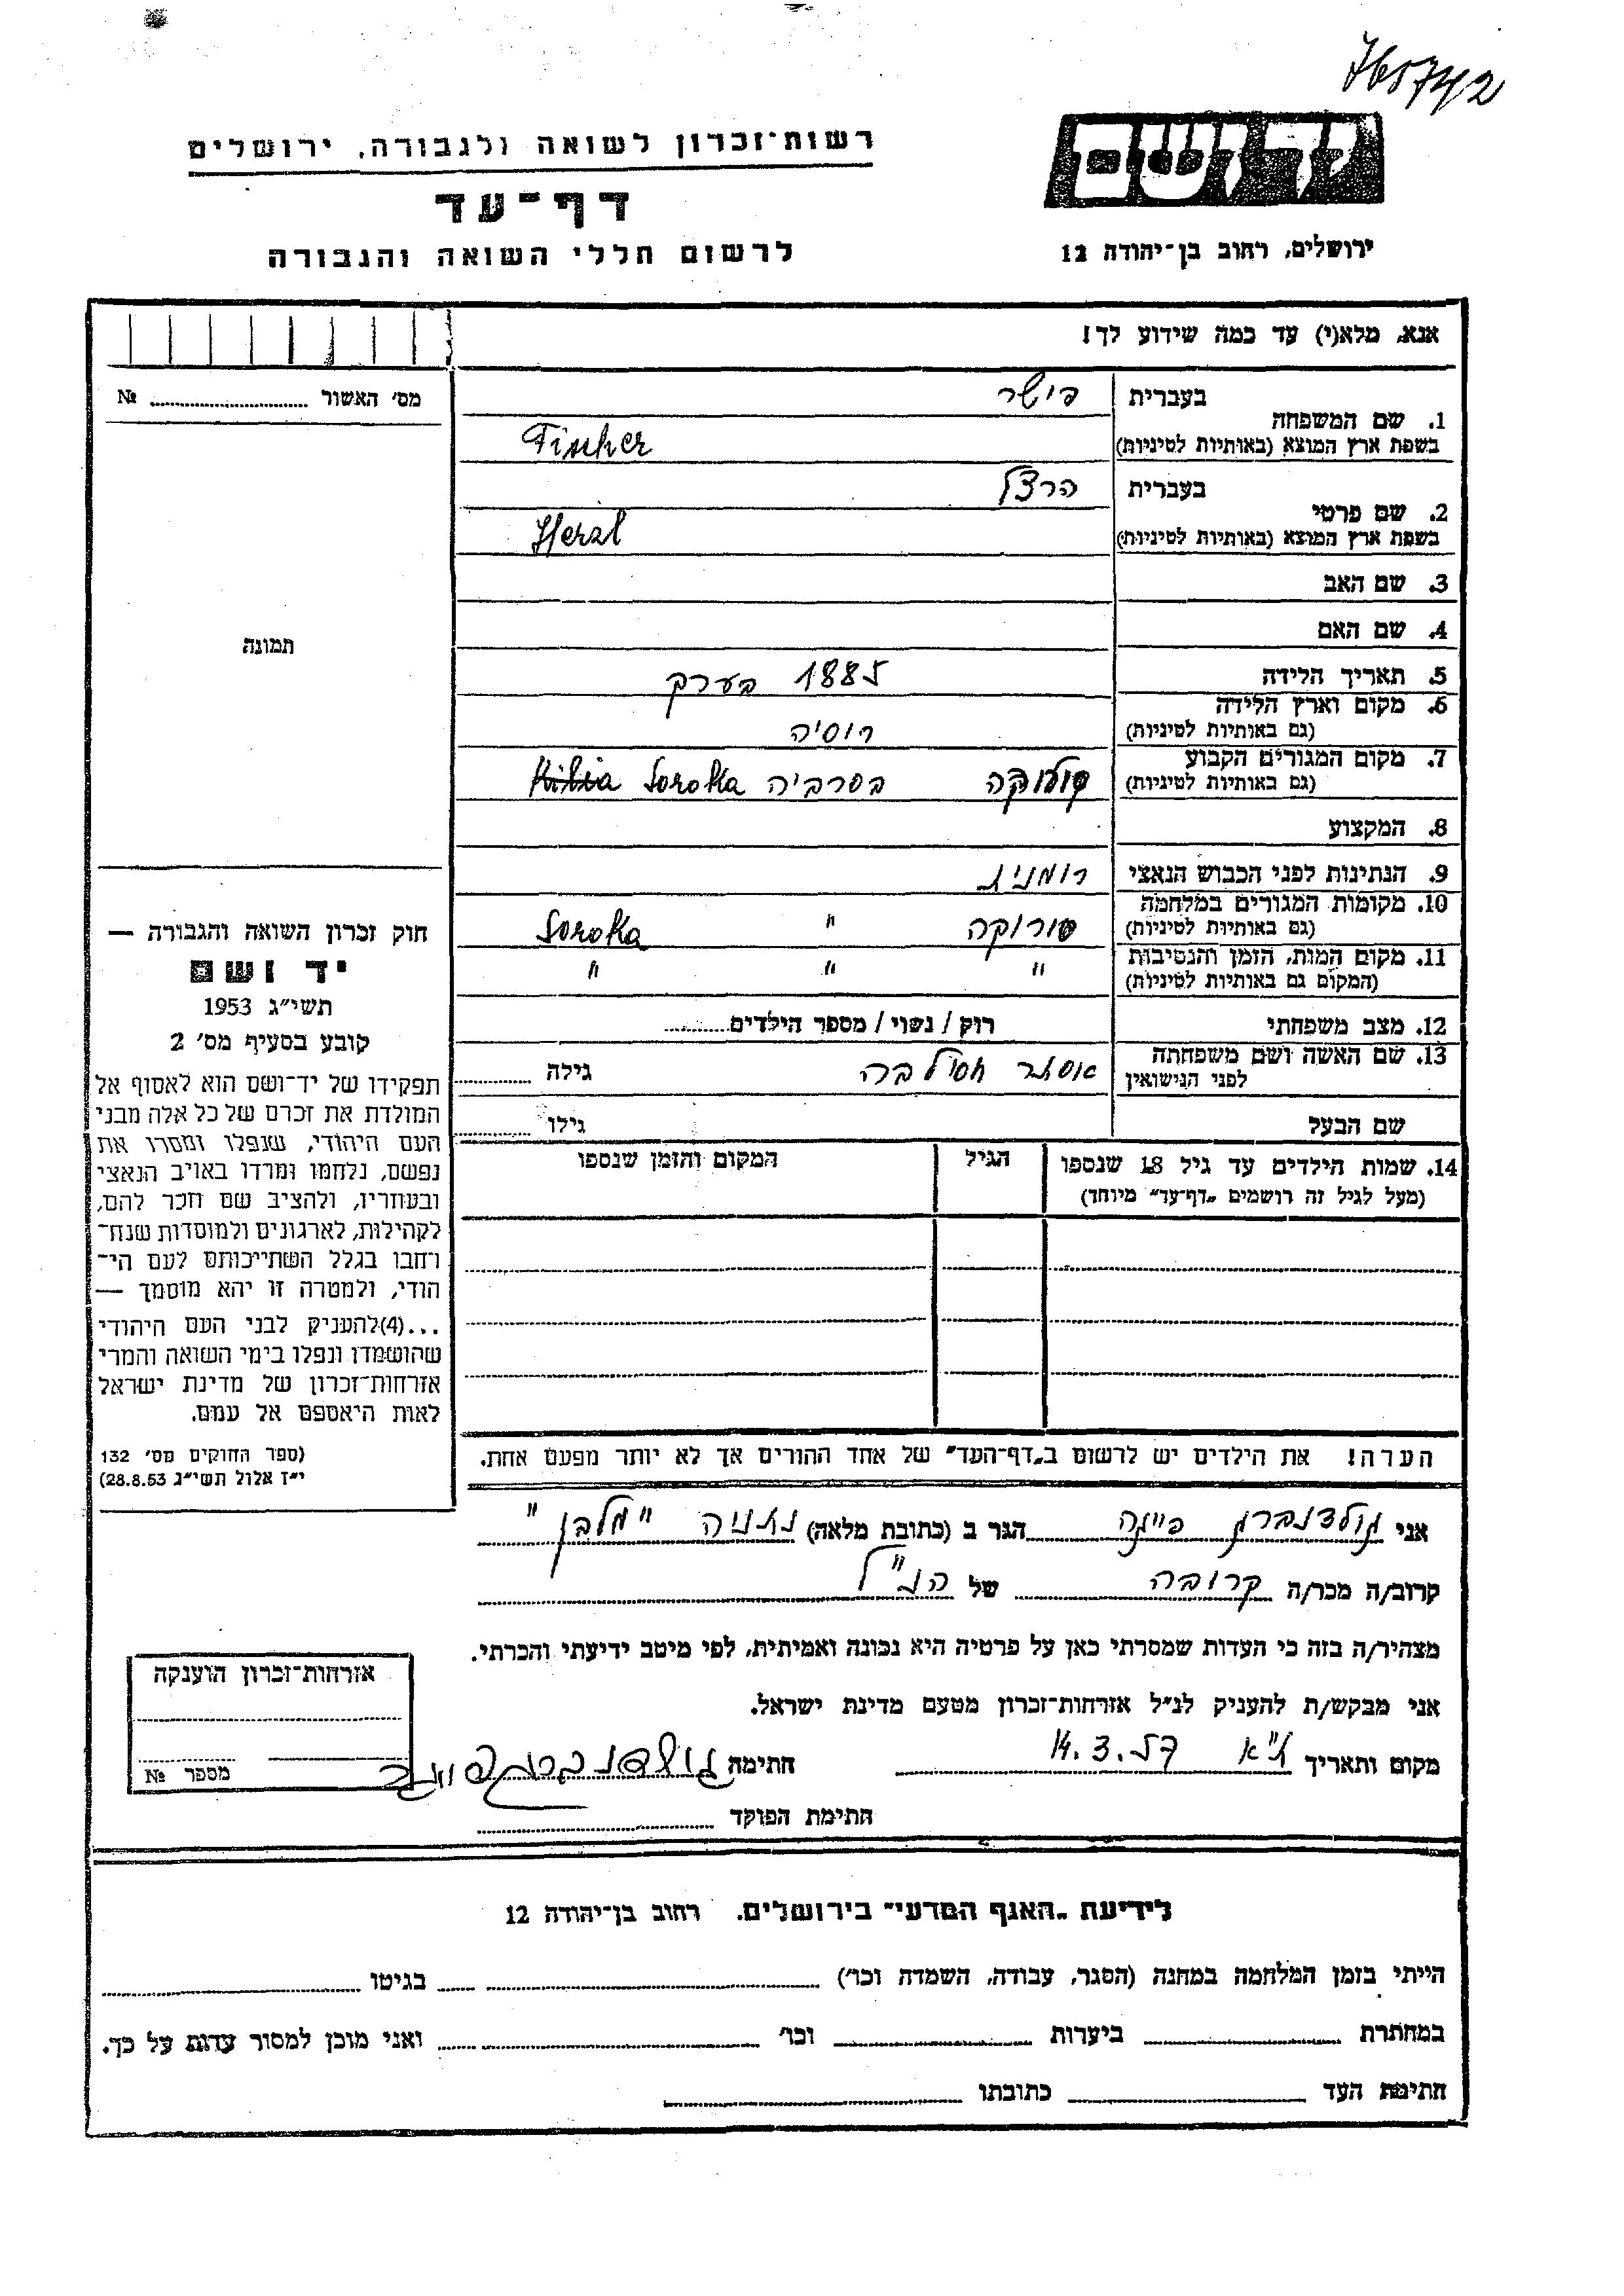 765742
רשות-זכרון לשואה ולגבורה, ירושלים
דף-עד
לרשום חללי השואה והגבורה
יד ושם
ירושלים, רחוב בן-יהודה 12
אנא, מלא(י) עד כמה שידוע לך!
מס' האשור № 
1. שם המשפחה בעברית פישר
בשפת ארץ המוצא (באותיות לטיניות) Fischer
2. שם פרטי בעברית הרצל
בשפת ארץ המוצא (באותיות לטיניות) Herzl
3. שם האב
4. שם האם
תמונה
5. תאריך הלידה 1885 בערך
6. מקום וארץ הלידה (גם באותיות לטיניות) רוסיה
7. מקום המגורים הקבוע (גם באותיות לטיניות) סורוקה בסרביה Soroka
8. המקצוע
9. הנתינות לפני הכבוש הנאצי רומנית
10. מקומות המגורים במלחמה (גם באותיות לטיניות) סורוקה " Soroka
11. מקום המות, הזמן והנסיבות (המקום גם באותיות לטיניות) " " "
12. מצב משפחתי רוק / נשוי / מספר הילדים
13. שם האשה ושם משפחתה לפני הנישואין אסתר גילה
שם הבעל גילו
14. שמות הילדים עד גיל 18 שנספו הגיל המקום והזמן שנספו
(מעל לגיל זה רושמים „דף-עד" מיוחד)
חוק זכרון השואה והגבורה —
יד ושם
תשי"ג 1953
קובע בסעיף מס' 2
תפקידו של יד-ושם הוא לאסוף אל
המולדת את זכרם של כל אלה מבני
העם היהודי, שנפלו ומסרו את
נפשם, נלחמו ומרדו באויב הנאצי
ובעוזריו, ולהציב שם וזכר להם,
לקהילות, לארגונים ולמוסדות שנח-
רחבו בגלל השתייכותם לעם הי-
הודי, ולמטרה זו יהא מוסמך —
...(4)להעניק לבני העם היהודי
שהושמדו ונפלו בימי השואה והמרי
אזרחות-זכרון של מדינת ישראל
לאות היאספם אל עמם.
(ספר החוקים מס' 132
י"ז אלול תשי"ג 28.8.53)
הערה! את הילדים יש לרשום ב„דף-העד" של אחד ההורים אך לא יותר מפעם אחת.
אני גולדנברג פייגה הגר ב (כתובת מלאה) נתניה "מלבן"
קרוב/ה מכר/ה קרובה של הנ"ל
מצהיר/ה בזה כי העדות שמסרתי כאן על פרטיה היא נכונה ואמיתית, לפי מיטב ידיעתי והכרתי.
אני מבקש/ת להעניק לנ"ל אזרחות-זכרון מטעם מדינת ישראל.
מקום ותאריך ת"א 14.3.57 חתימה גולדנברג פייגה
חתימת הפוקד
אזרחות-זכרון הוענקה
מספר №
לידיעת „האגף המדעי" בירושלים. רחוב בן-יהודה 12
הייתי בזמן המלחמה במחנה (הסגר, עבודה, השמדה וכו') בגיטו
במחתרת ביערות וכו' ואני מוכן למסור עדות על כך.
חתימת העד כתובתו